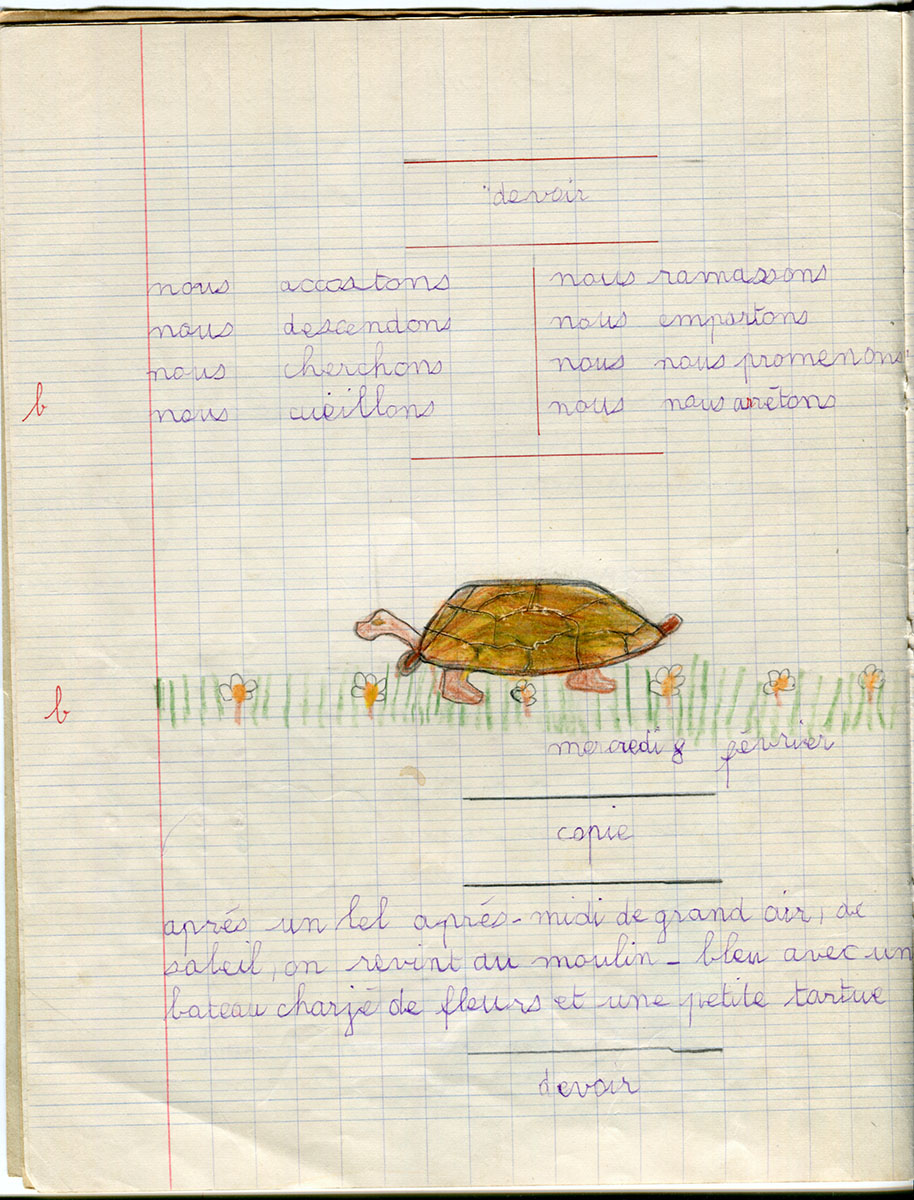 devoir
nous accostons
nous descendons
nous cherchons
b nous cueillons
nous ramassons
nous emportons
nous nous promenons
nous nous arrêtons
b
mercredi 8 février
copie
aprés un bel aprés-midi de grand air, de
soleil, on revint du moulin-bleu avec un
bateau charjé de fleurs et une petite tortue
devoir